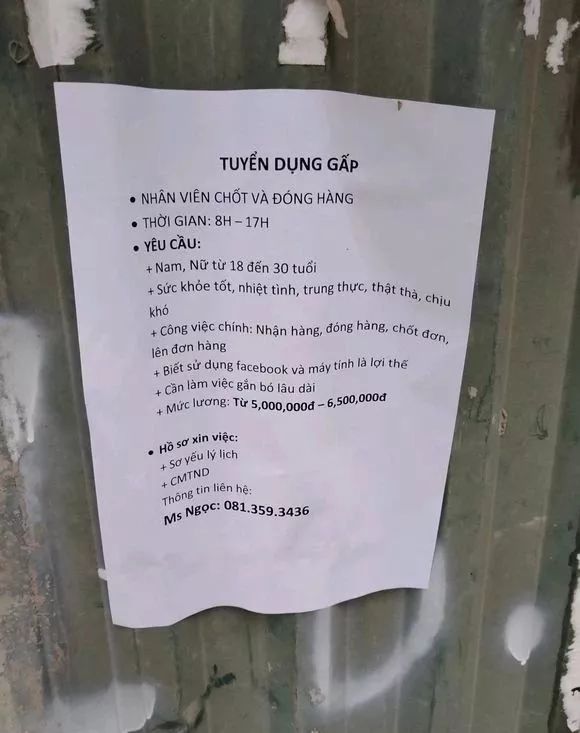 TUYỂN DỤNG GẤP
• NHÂN VIÊN CHỐT VÀ ĐÓNG HÀNG
• THỜI GIAN: 8H – 17H
• YÊU CẦU:
+ Nam, Nữ từ 18 đến 30 tuổi
+ Sức khỏe tốt, nhiệt tình, trung thực, thật thà, chịu
khó
+ Công việc chính: Nhận hàng, đóng hàng, chốt đơn,
lên đơn hàng
+ Biết sử dụng facebook và máy tính là lợi thế
+ Cần làm việc gắn bó lâu dài
+ Mức lương: Từ 5,000,000đ – 6,500,000đ
• Hồ sơ xin việc:
+ Sơ yếu lý lịch
+ CMTND
Thông tin liên hệ:
Ms Ngọc: 081.359.3436